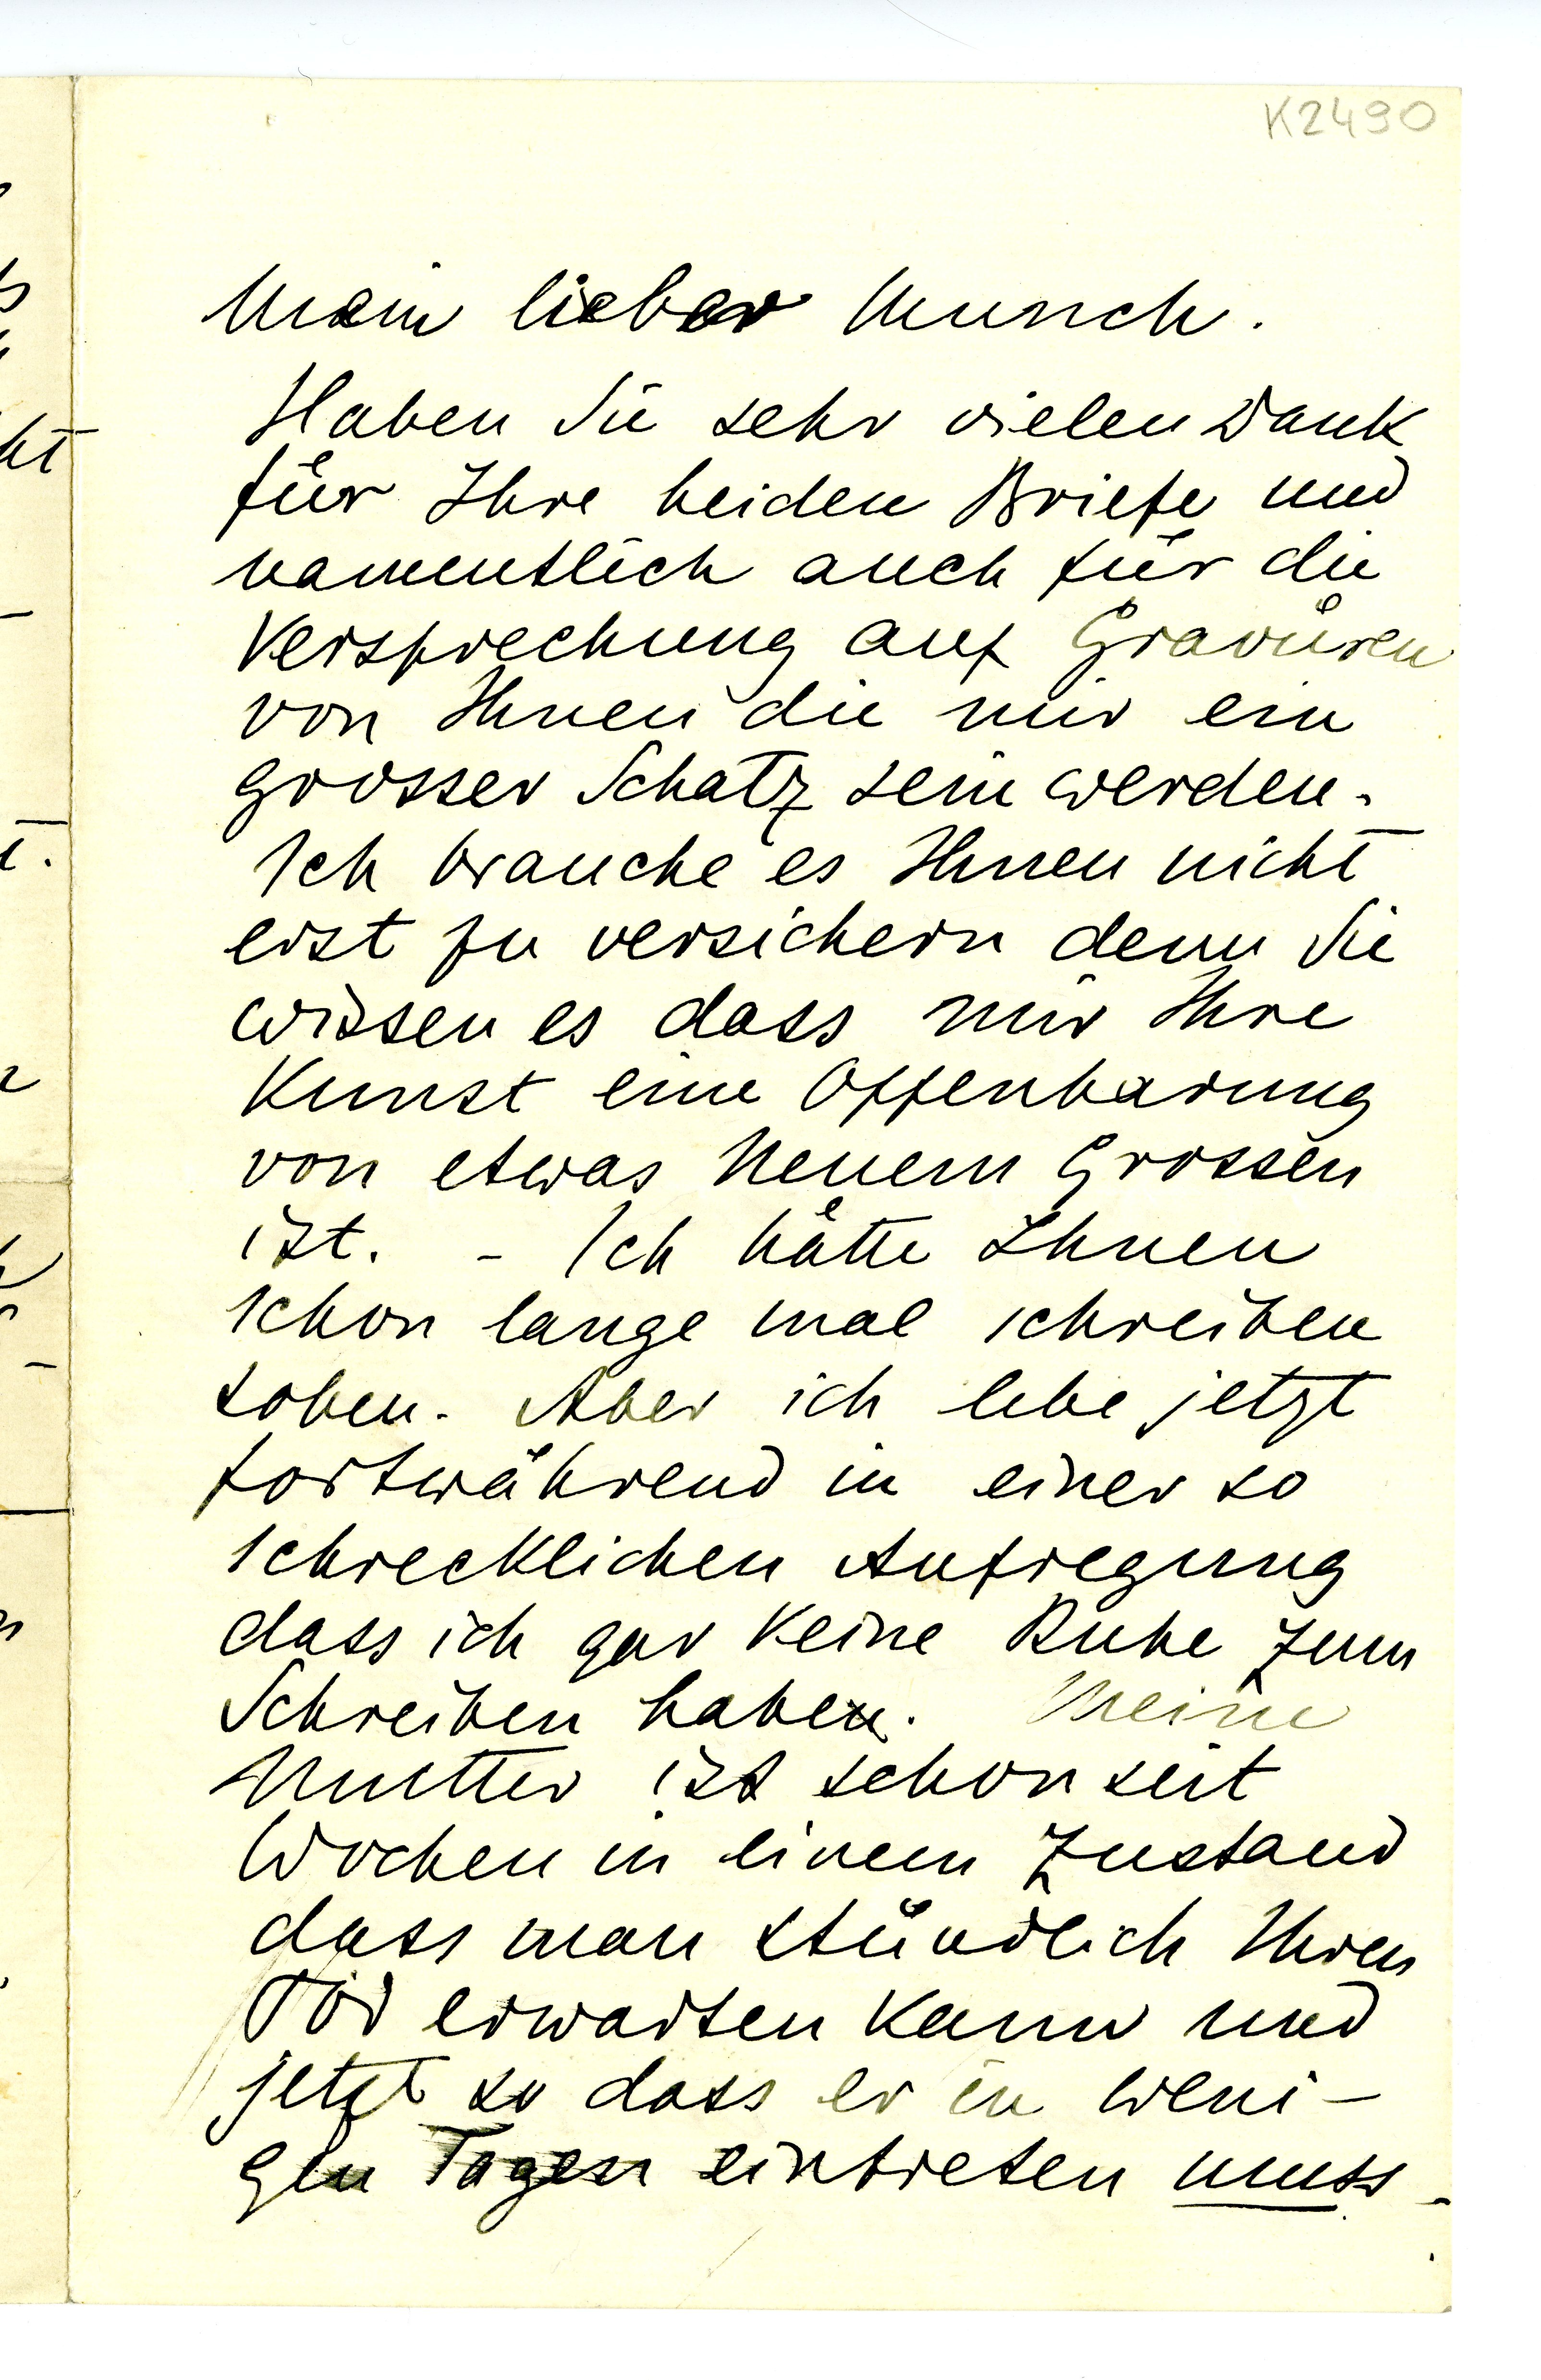 K2490
Mein lieber Munch.
Haben Sie sehr vielen Dank
für Ihre beiden Briefe und
namentlich auch für die
Versprechung auf Gravüren
von Ihnen die mir ein
grosser Schatz sein werden.
Ich brauche es Ihnen nicht
erst zu versichern denn Sie
wissen es dass mir Ihre
Kunst eine Offenbarung
von etwas Neuem Grossen
ist. – Ich hätte Ihnen
schon lange mal schreiben
sollen. Aber ich lebe jetzt
fortwährend in einer so
schrecklichen Aufregung
dass ich gar keine Ruhe zum
Schreiben habe. Meine
Mutter ist schon seit
Wochen in einem Zustand
dass man stündlich Ihren
Tod erwarten kann und
jetzt so dass er in weni-
gen Tagen eintreten muss.